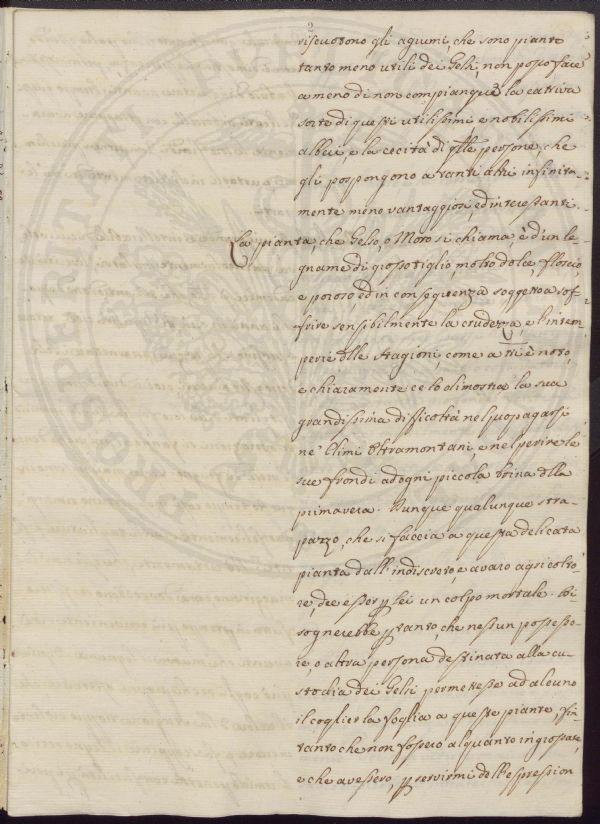 2
riscuotono gli agrumi, che sono piante
tanto meno utili dei Gelsi, non posso fare
a meno di non compiangere la cattiva
sorte di questi utilissimi e nobilissimi
alberi, e la cecità di qlle persone, che
gli pospongono a tanti altri infinita-
mente meno vantaggiosi, ed interessanti.
La pianta, che Gelso, o Moro si chiama, è d'un le
gname di grosso tiglio, molto dolce, floscio,
e poroso, ed in conseguenza soggetto a sof
frire sensibilmente la crudezza, e l'intem
perie dlle stagioni, come a tti è noto,
e chiaramente ce lo dimostra la sua
grandissima difficoltà nel propagarsi
ne' Climi Oltramontani, e nel perire le
sue frondi ad ogni piccola brina dlla
primavera. Dunque qualunque stra-
pazzo, che si faccia a questa delicata
pianta dall'indiscreto, e avaro agricolto-
re, dee esser p lei un colpo mortale. Bi
sognerebbe p tanto, che nessun possesso-
re, o altra persona destinata alla cu-
stodia dei Gelsi permettesse ad alcuno
il coglier la foglia a queste piante, fin
tanto che non fossero alquanto ingrossate,
e che avessero, p servirmi dell'espression